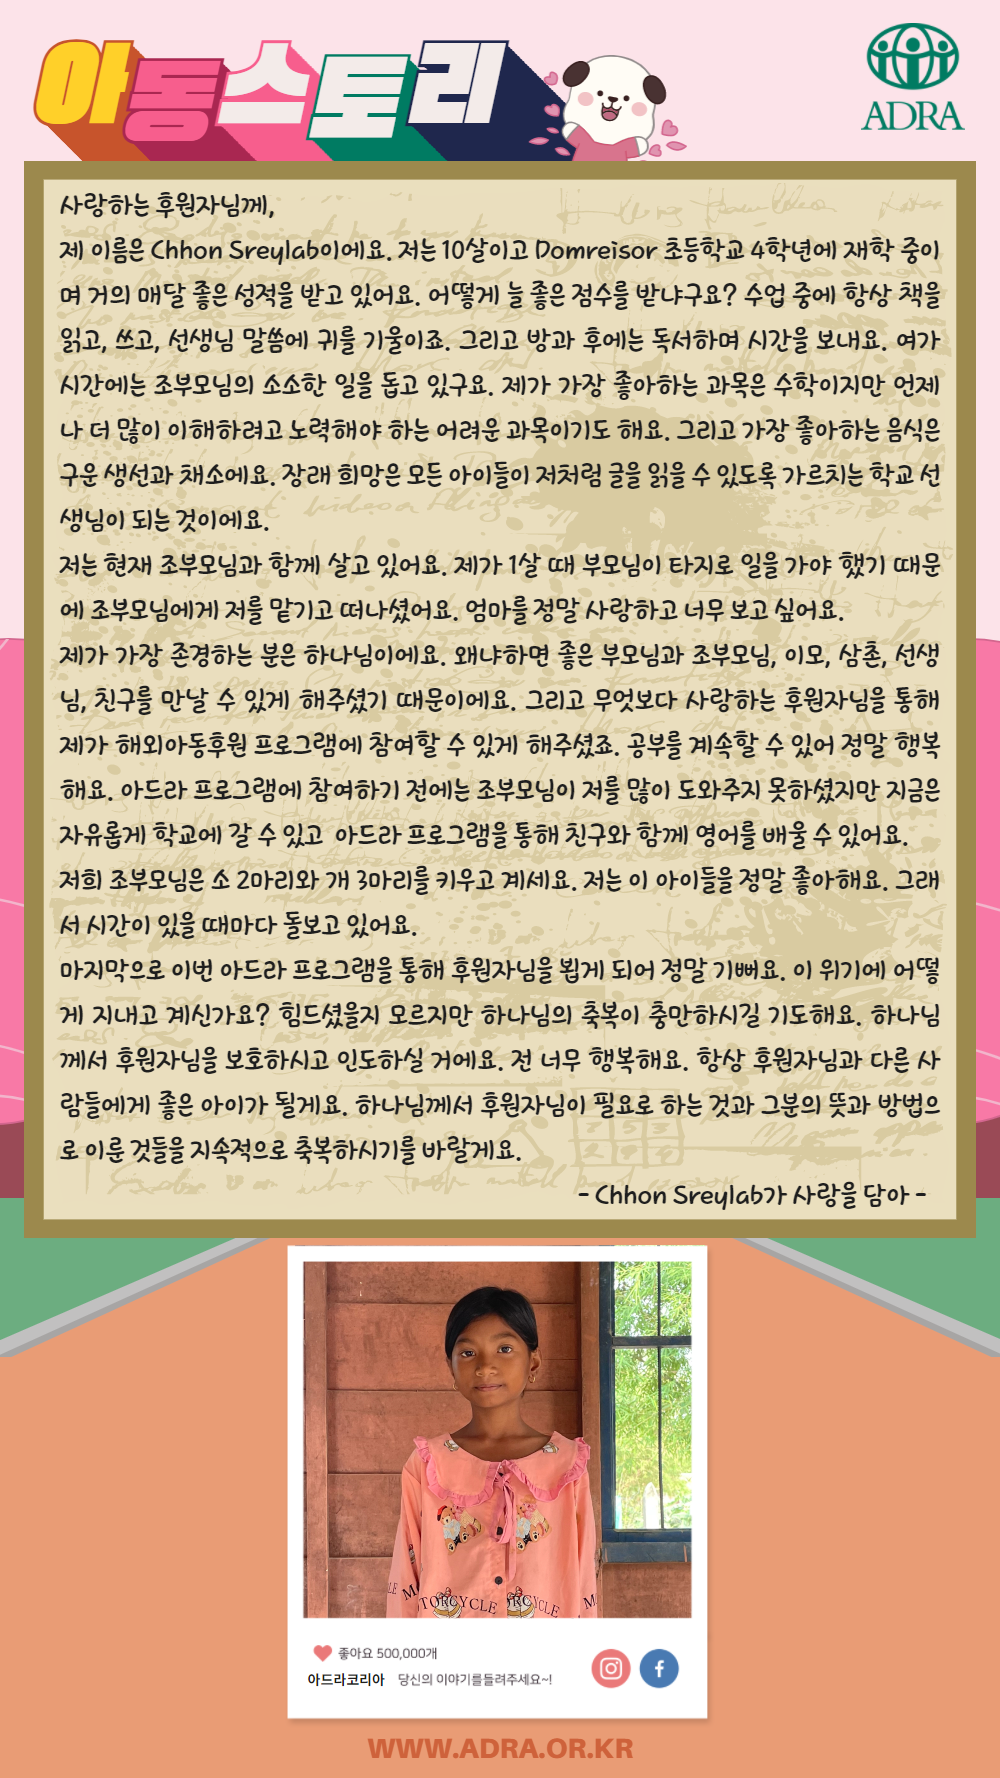 아동스토리
ADRA
사랑하는 후원자님께,
제 이름은 Chhon Sreylab이에요. 저는 10살이고 Domreisor 초등학교 4학년에 재학 중이
며 거의 매달 좋은 성적을 받고 있어요. 어떻게 늘 좋은 점수를 받냐구요? 수업 중에 항상 책을
읽고, 쓰고, 선생님 말씀에 귀를 기울이죠. 그리고 방과 후에는 독서하며 시간을 보내요. 여가
시간에는 조부모님의 소소한 일을 돕고 있구요. 제가 가장 좋아하는 과목은 수학이지만 언제
나 더 많이 이해하려고 노력해야 하는 어려운 과목이기도 해요. 그리고 가장 좋아하는 음식은
구운 생선과 채소에요. 장래 희망은 모든 아이들이 저처럼 글을 읽을 수 있도록 가르치는 학교 선
생님이 되는 것이에요.
저는 현재 조부모님과 함께 살고 있어요. 제가 1살 때 부모님이 타지로 일을 가야 했기 때문
에 조부모님에게 저를 맡기고 떠나셨어요. 엄마를 정말 사랑하고 너무 보고 싶어요.
제가 가장 존경하는 분은 하나님이에요. 왜냐하면 좋은 부모님과 조부모님, 이모, 삼촌, 선생
님, 친구를 만날 수 있게 해주셨기 때문이에요. 그리고 무엇보다 사랑하는 후원자님을 통해
제가 해외아동후원 프로그램에 참여할 수 있게 해주셨죠. 공부를 계속할 수 있어 정말 행복
해요. 아드라 프로그램에 참여하기 전에는 조부모님이 저를 많이 도와주지 못하셨지만 지금은
자유롭게 학교에 갈 수 있고 아드라 프로그램을 통해 친구와 함께 영어를 배울 수 있어요.
저희 조부모님은 소 2마리와 개 3마리를 키우고 계세요. 저는 이 아이들을 정말 좋아해요. 그래
서 시간이 있을 때마다 돌보고 있어요.
마지막으로 이번 아드라 프로그램을 통해 후원자님을 뵙게 되어 정말 기뻐요. 이 위기에 어떻
게 지내고 계신가요? 힘드셨을지 모르지만 하나님의 축복이 충만하시길 기도해요. 하나님
께서 후원자님을 보호하시고 인도하실 거에요. 전 너무 행복해요. 항상 후원자님과 다른 사
람들에게 좋은 아이가 될게요. 하나님께서 후원자님이 필요로 하는 것과 그분의 뜻과 방법으
로 이룬 것들을 지속적으로 축복하시기를 바랄게요.
- Chhon Sreylab가 사랑을 담아 -
MOTORCYCLE
좋아요 500,000개
아드라코리아 당신의 이야기를들려주세요~!
WWW.ADRA.OR.KR